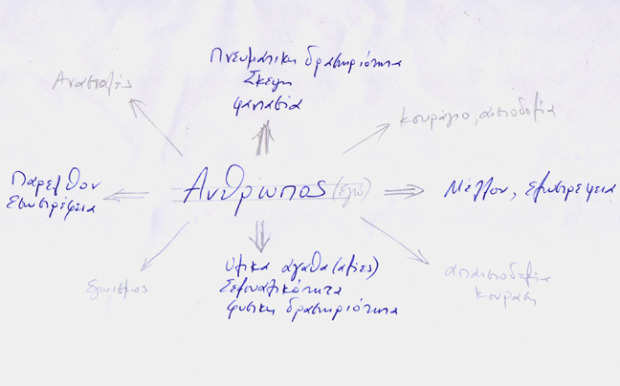 Πνευματικη δραστηριότητα
Σκεψη
φαντασία
Αναστολές
κουράγιο, αισιοδοξία
Παρελθον
Εσωστρέφεια
Ανθρωπος (εγώ)
Μέλλον, Εξωστρέφεια
εγωισμος
ύλικα άγαθα (αξίες)
Σεξουαλικότητα
φυσικη δραστηριότητα
απαισιοδοξία
κουραση